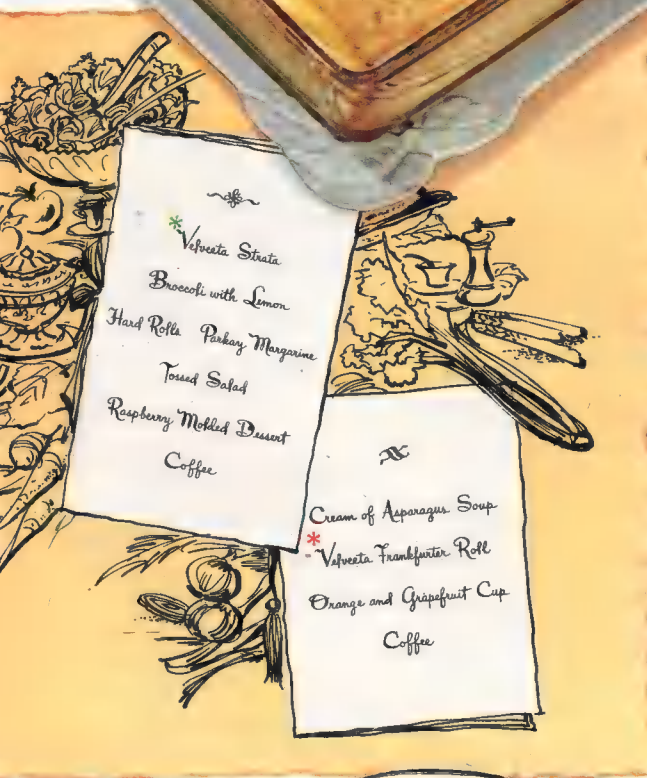 *Velveeta Strata
Broccoli with Lemon
Hard Rolls Parkay Margarine
Tossed Salad
Raspberry Molded Dessert
Coffee
Cream of Asparagus Soup
*Velveeta Frankfurter Roll
Orange and Grapefruit Cup
Coffee